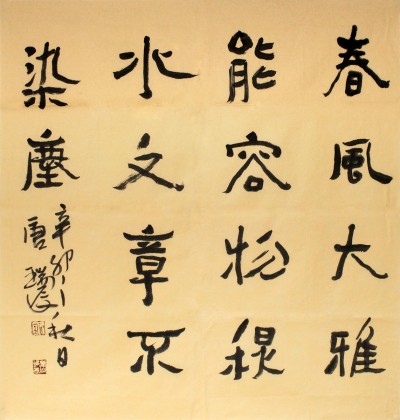 春風大雅
能容物
水文章不
染塵
辛卯秋日
唐